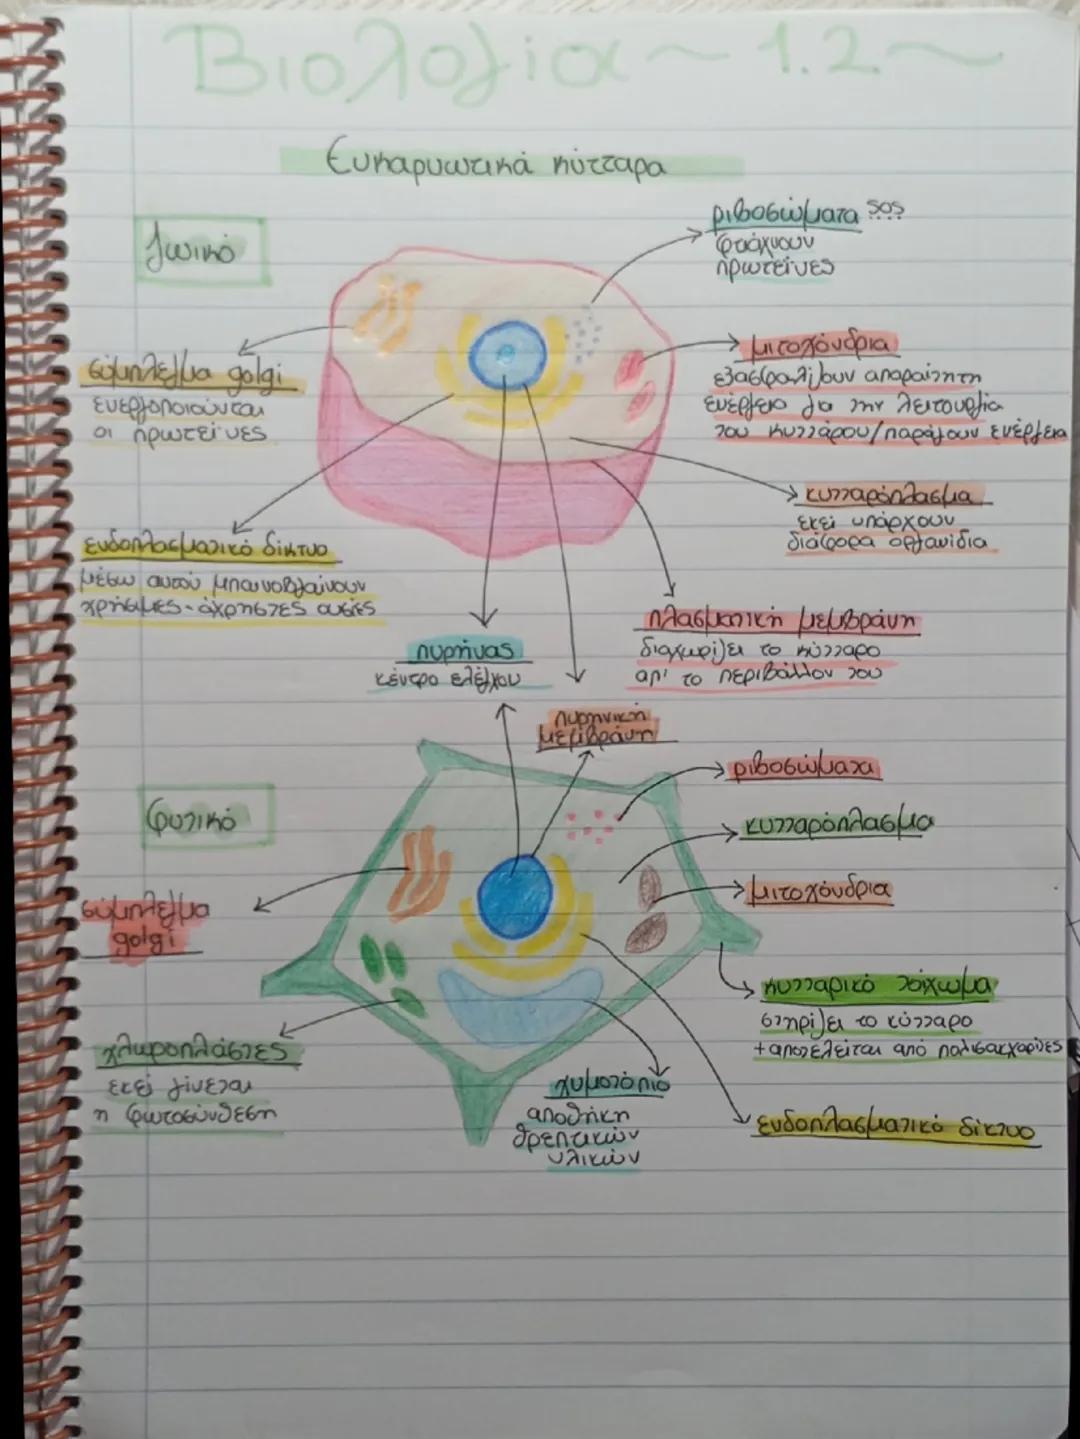 Βιολογία ~ 1.2 ~
Ευκαρυωτικά κύτταρα
Ζωικό
ριβοσώματα SOS
φτιάχνουν
πρωτεΐνες
σύμπλεγμα golgi
ενεργοποιούνται
οι πρωτεΐνες
μιτοχόνδρια
εξασφαλίζουν απαραίτητη
ενέργεια για την λειτουργία
του κυττάρου/παράγουν ενέργεια
κυτταρόπλασμα
εκεί υπάρχουν
διάφορα οργανίδια
ενδοπλασματικό δίκτυο
μέσω αυτού μπαινοβγαίνουν
χρήσιμες-άχρηστες ουσίες
πλασματική μεμβράνη
διαχωρίζει το κύτταρο
απ' το περιβάλλον του
πυρήνας
κέντρο ελέγχου
πυρηνική
μεμβράνη
Φυτικό
ριβοσώματα
κυτταρόπλασμα
μιτοχόνδρια
σύμπλεγμα
golgi
κυτταρικό τοίχωμα
στηρίζει το κύτταρο
+ αποτελείται από πολυσακχαρίτες
χλωροπλάστες
εκεί γίνεται
η φωτοσύνθεση
χυμοτόπιο
αποθήκη
θρεπτικών
υλικών
ενδοπλασματικό δίκτυο